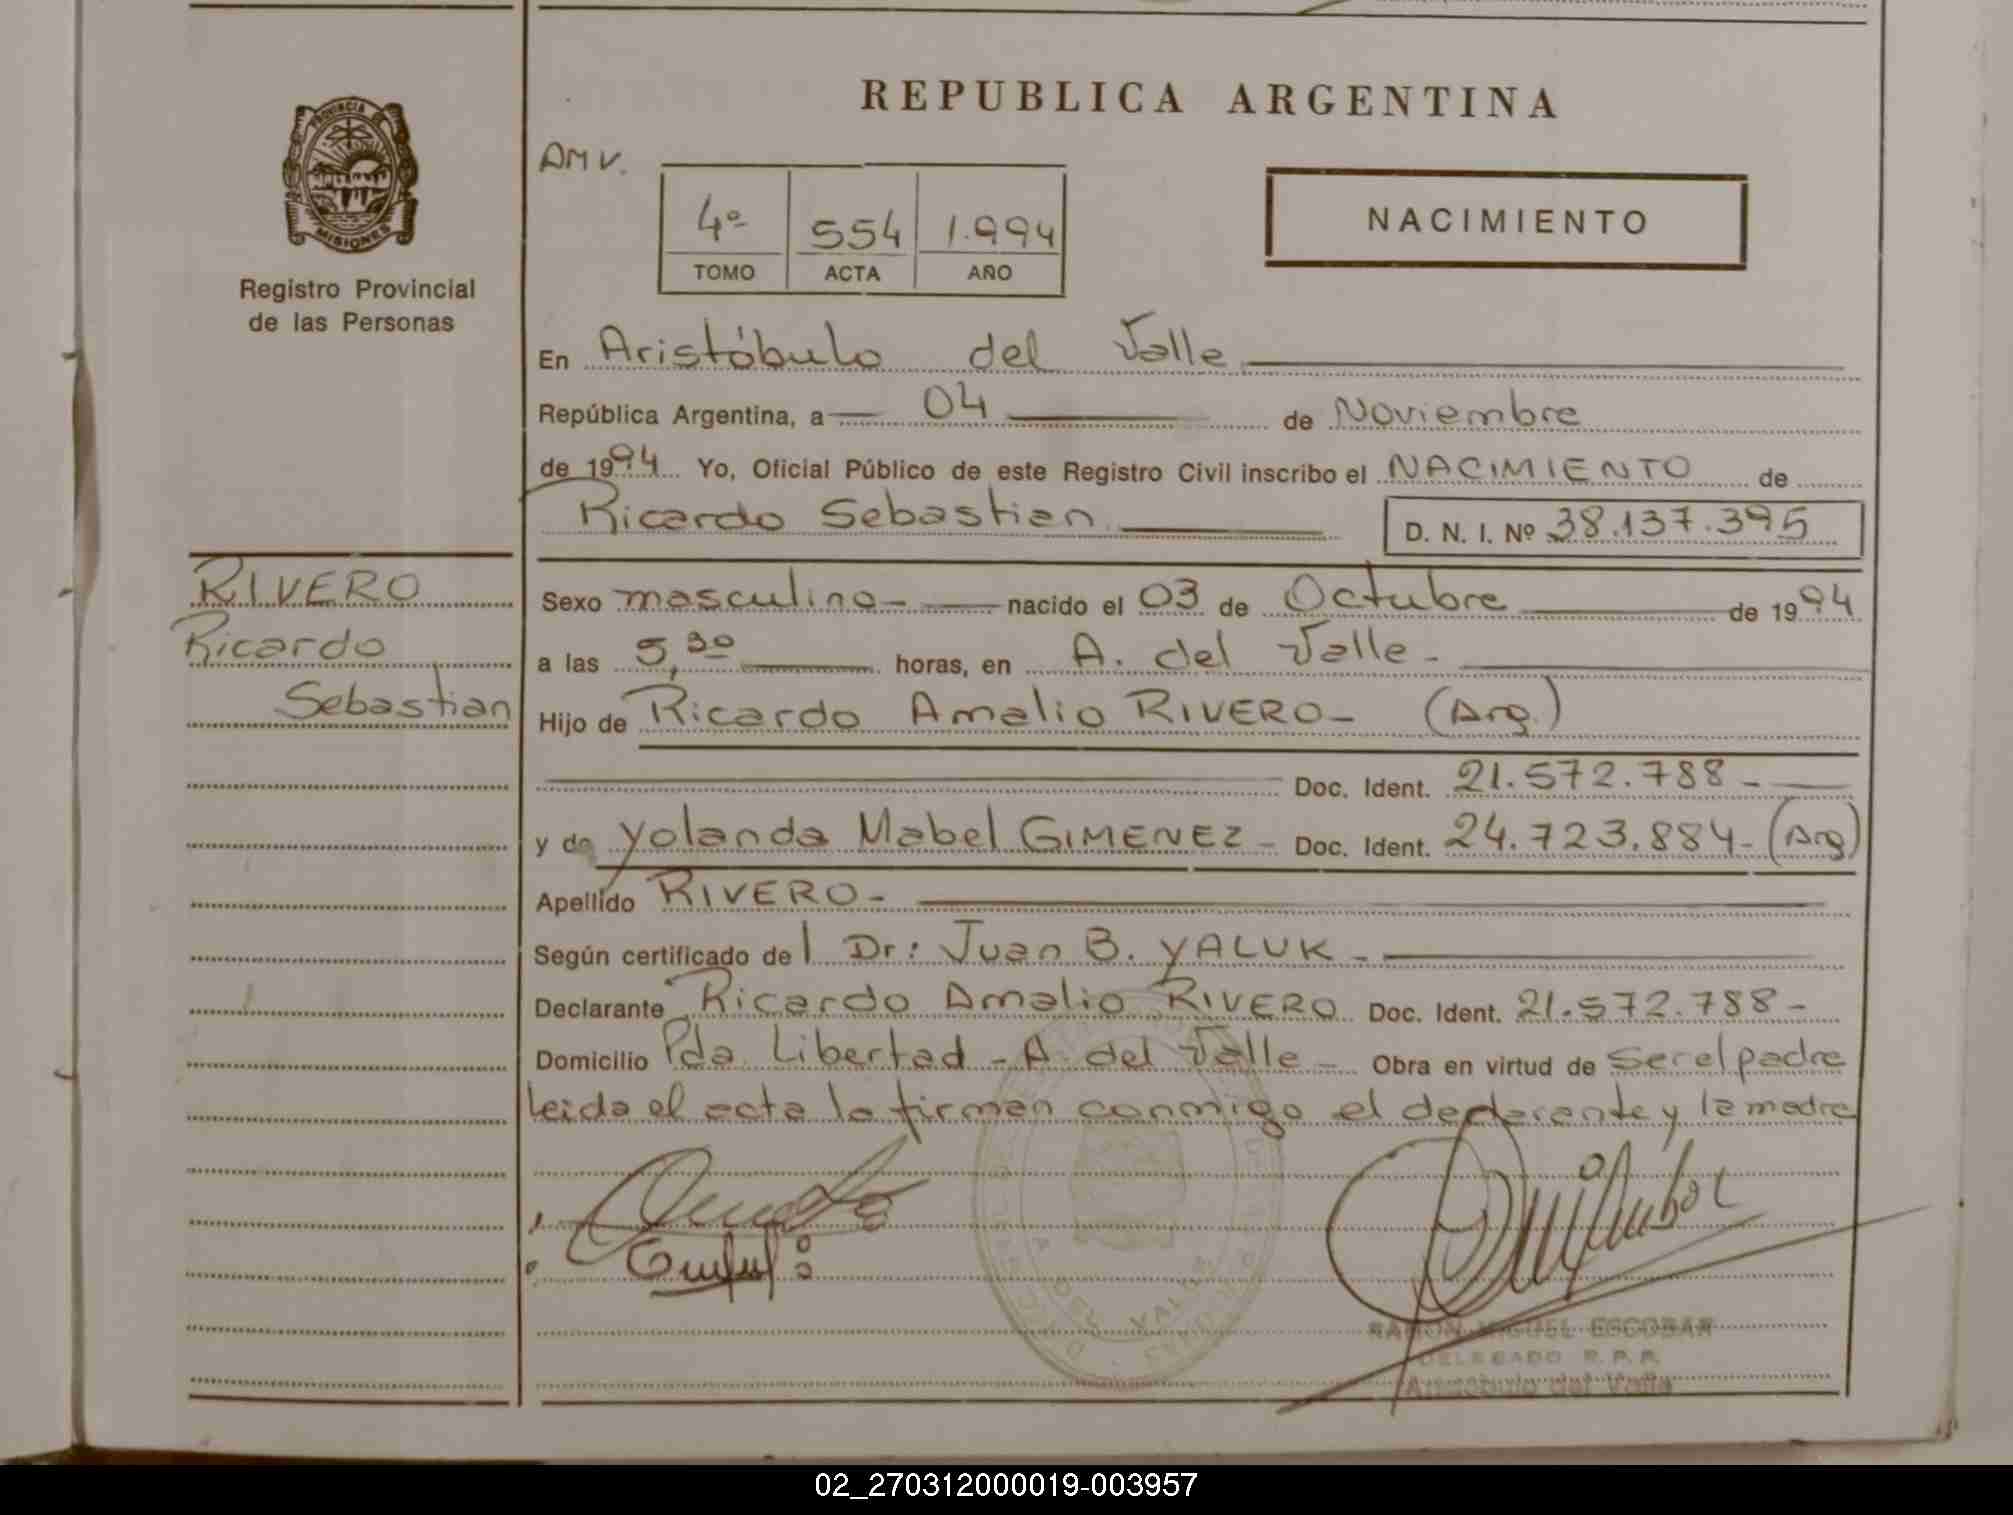 REPUBLICA ARGENTINA
PROVINCIA DE
MISIONES
Registro Provincial
de las Personas
AMV.
4º 554 1.994
TOMO ACTA AÑO
NACIMIENTO
En Aristóbulo del Valle
República Argentina, a 04 de Noviembre
de 1994 Yo, Oficial Público de este Registro Civil inscribo el NACIMIENTO de
Ricardo Sebastian D. N. I. Nº 38.137.395
RIVERO
Ricardo
Sebastian
Sexo masculino- nacido el 03 de Octubre de 1994
a las 5,30 horas, en A. del Valle-
Hijo de Ricardo Amalio RIVERO- (Arg.)
Doc. Ident. 21.572.788-
y de Yolanda Mabel GIMENEZ- Doc. Ident. 24.723.884-(Arg)
Apellido RIVERO-
Según certificado del Dr: Juan B. YALUK-
Declarante Ricardo Amalio RIVERO Doc. Ident. 21.572.788-
Domicilio Pda. Libertad - A. del Valle- Obra en virtud de ser el padre
leida el acta la firman conmigo el declarante y la madre
RAMON MIGUEL ESCOBAR
DELEGADO R. P. P.
Aristóbulo del Valle
02_270312000019-003957